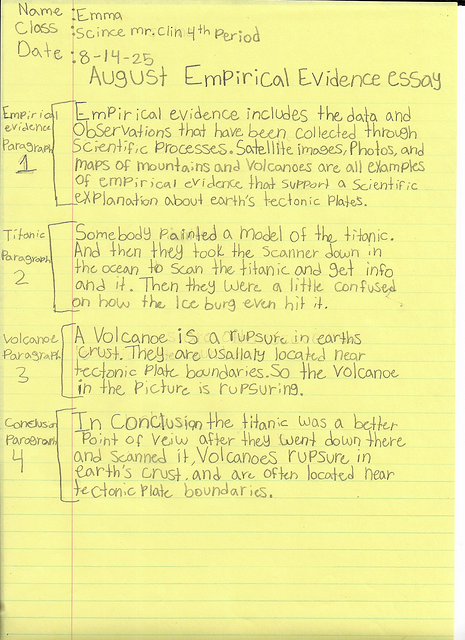 Name : Emma
Class : Scince mr. Clin 4th Period
Date : 8-14-25
August Empirical Evidence essay
Empirical evidence Paragraph 1
Empirical evidence includes the data and
Observations that have been collected through
Scientific Processes. Satellite images, Photos, and
maps of mountains and Volcanoes are all examples
OF empirical evidence that support a Scientific
explanation about earth's tectonic Plates.
Titanic Paragraph 2
Somebody Painted a model of the titanic.
And then they took the scanner down in
the ocean to scan the titanic and get info
and it. Then they were a little confused
on how the Ice burg even hit it.
Volcanoe Paragraph 3
A Volcanoe is a rupsure in earths
Crust. They are usallaly located near
tectonic Plate boundaries. So the Volcanoe
in the Picture is rupsuring.
Conclusion Paragraph 4
In Conclusion the titanic was a better
Point of veiw after they went down there
and scanned it, Volcanoes rupsure in
earth's crust. and are often located near
tectonic Plate boundaries.